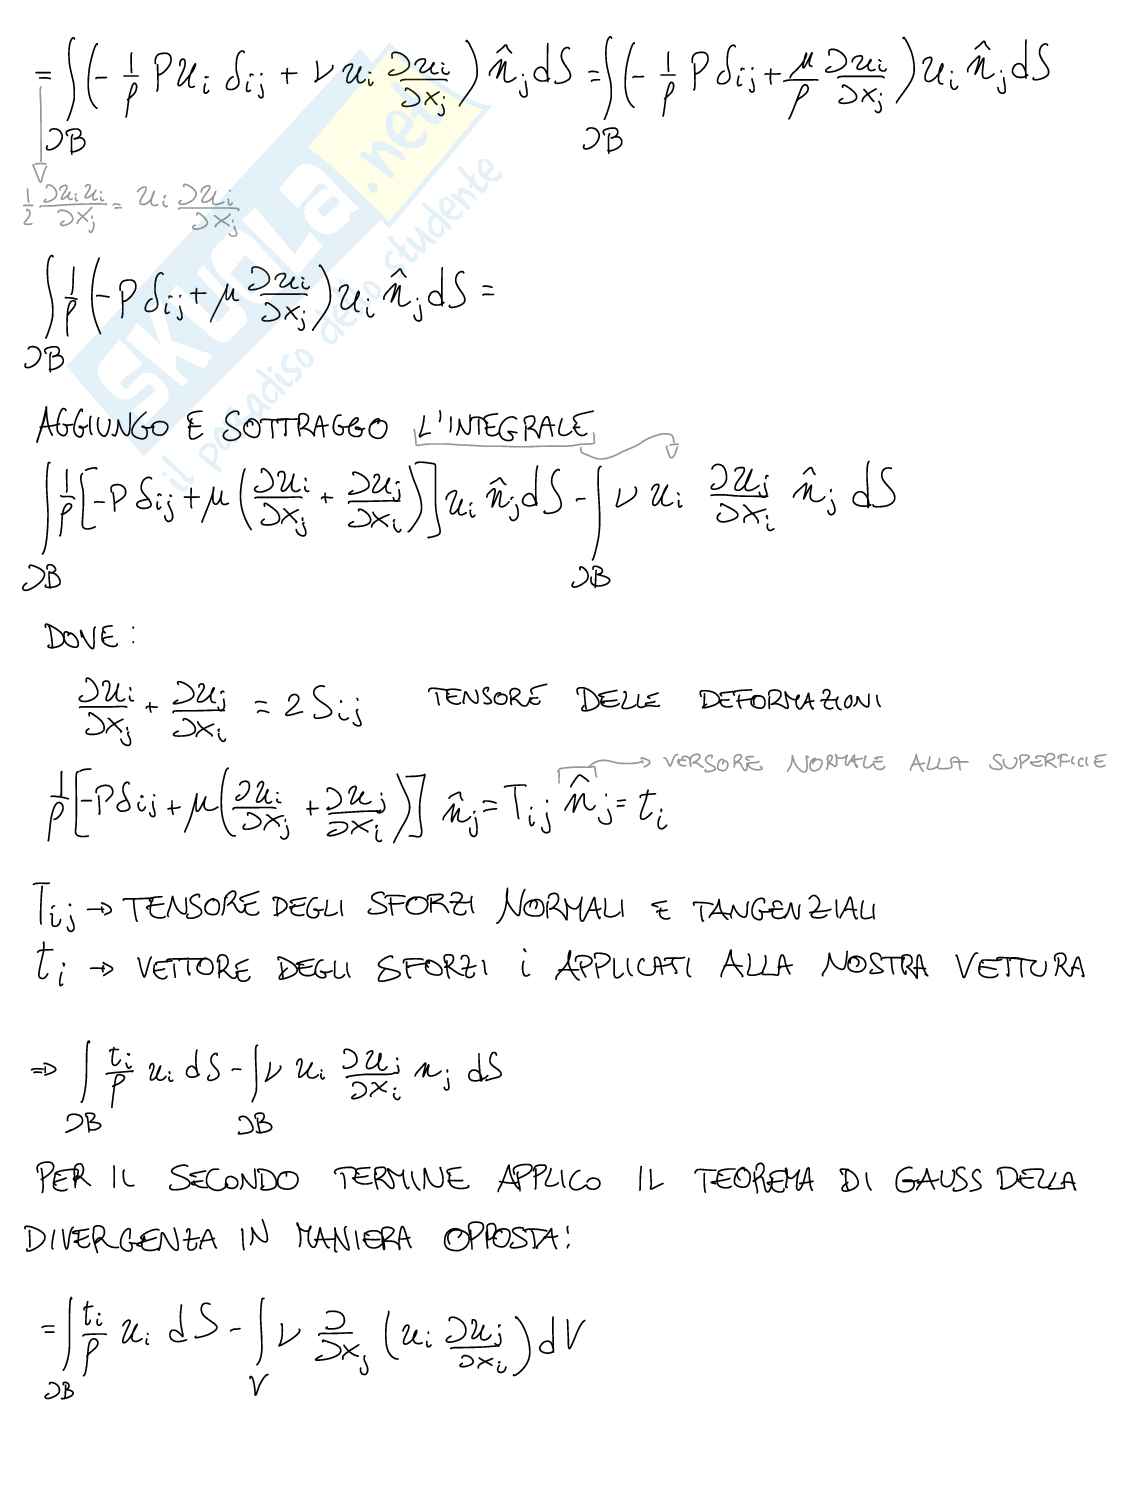 = ∫∂B (- 1/ρ P u_i δ_ij + ν u_i ∂u_i/∂x_j) n̂_j dS = ∫∂B (- 1/ρ P δ_ij + μ/ρ ∂u_i/∂x_j) u_i n̂_j dS
1/2 ∂u_i u_i/∂x_j = u_i ∂u_i/∂x_j
∫∂B 1/ρ (-P δ_ij + μ ∂u_i/∂x_j) u_i n̂_j dS =
AGGIUNGO E SOTTRAGGO L'INTEGRALE
∫∂B 1/ρ [-P δ_ij + μ (∂u_i/∂x_j + ∂u_j/∂x_i)] u_i n̂_j dS - ∫∂B ν u_i ∂u_j/∂x_i n̂_j dS
DOVE:
∂u_i/∂x_j + ∂u_j/∂x_i = 2 S_ij TENSORE DELLE DEFORMAZIONI
→ VERSORE NORMALE ALLA SUPERFICIE
1/ρ [-P δ_ij + μ (∂u_i/∂x_j + ∂u_j/∂x_i)] n̂_j = T_ij n̂_j = t_i
T_ij → TENSORE DEGLI SFORZI NORMALI E TANGENZIALI
t_i → VETTORE DEGLI SFORZI i APPLICATI ALLA NOSTRA VETTURA
⇒ ∫∂B t_i/ρ u_i dS - ∫∂B ν u_i ∂u_j/∂x_i n_j dS
PER IL SECONDO TERMINE APPLICO IL TEOREMA DI GAUSS DELLA
DIVERGENZA IN MANIERA OPPOSTA:
= ∫∂B t_i/ρ u_i dS - ∫V ν ∂/∂x_j (u_i ∂u_j/∂x_i) dV
SKUOLA.net
il paradiso dello studente